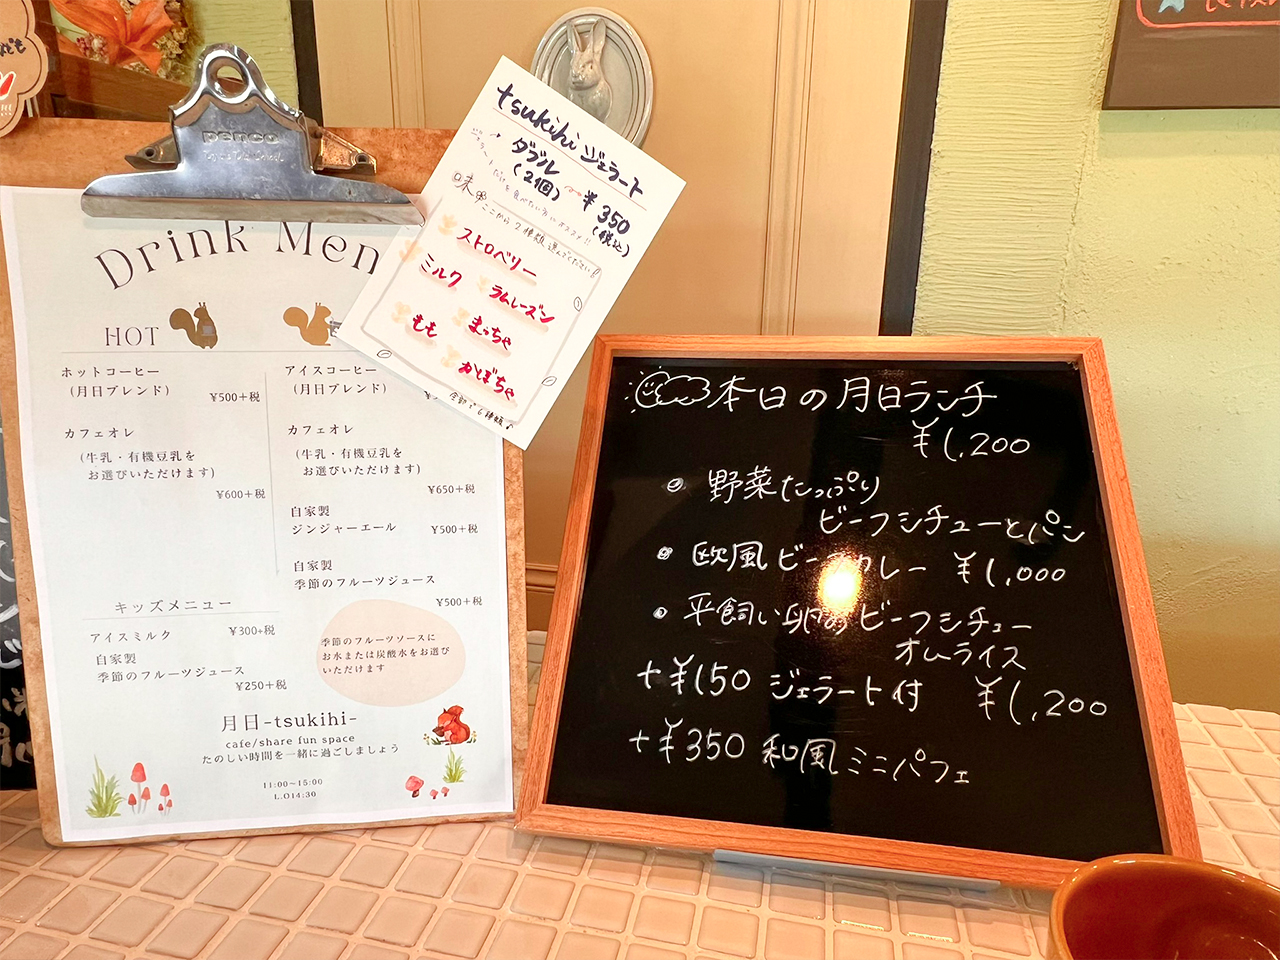 penco
Drink Men
HOT
ホットコーヒー
(月日ブレンド)
¥500+税
カフェオレ
(牛乳・有機豆乳を
お選びいただけます)
¥600+税
アイスコーヒー
(月日ブレンド)
カフェオレ
(牛乳・有機豆乳を
お選びいただけます)
¥650+税
自家製
ジンジャーエール
¥500+税
自家製
季節のフルーツジュース
¥500+税
キッズメニュー
アイスミルク
¥300+税
自家製
季節のフルーツジュース
¥250+税
季節のフルーツソースに
お水または炭酸水をお選び
いただけます
月日-tsukihi-
cafe/share fun space
たのしい時間を一緒に過ごしましょう
11:00~15:00
L.O14:30
tsukihi ジェラート
ダブル
(2個)
¥350
(税込)
味
ここから2種類選んでください!!
ストロベリー
ミルク
ラムレーズン
もも
まっちゃ
かぼちゃ
全部で6種類♪
本日の月日ランチ
¥1,200
野菜たっぷり
ビーフシチューとパン
欧風ビーフカレー ¥1,000
平飼い卵のビーフシチュー
オムライス
+¥150 ジェラート付 ¥1,200
+¥350 和風ミニパフェ